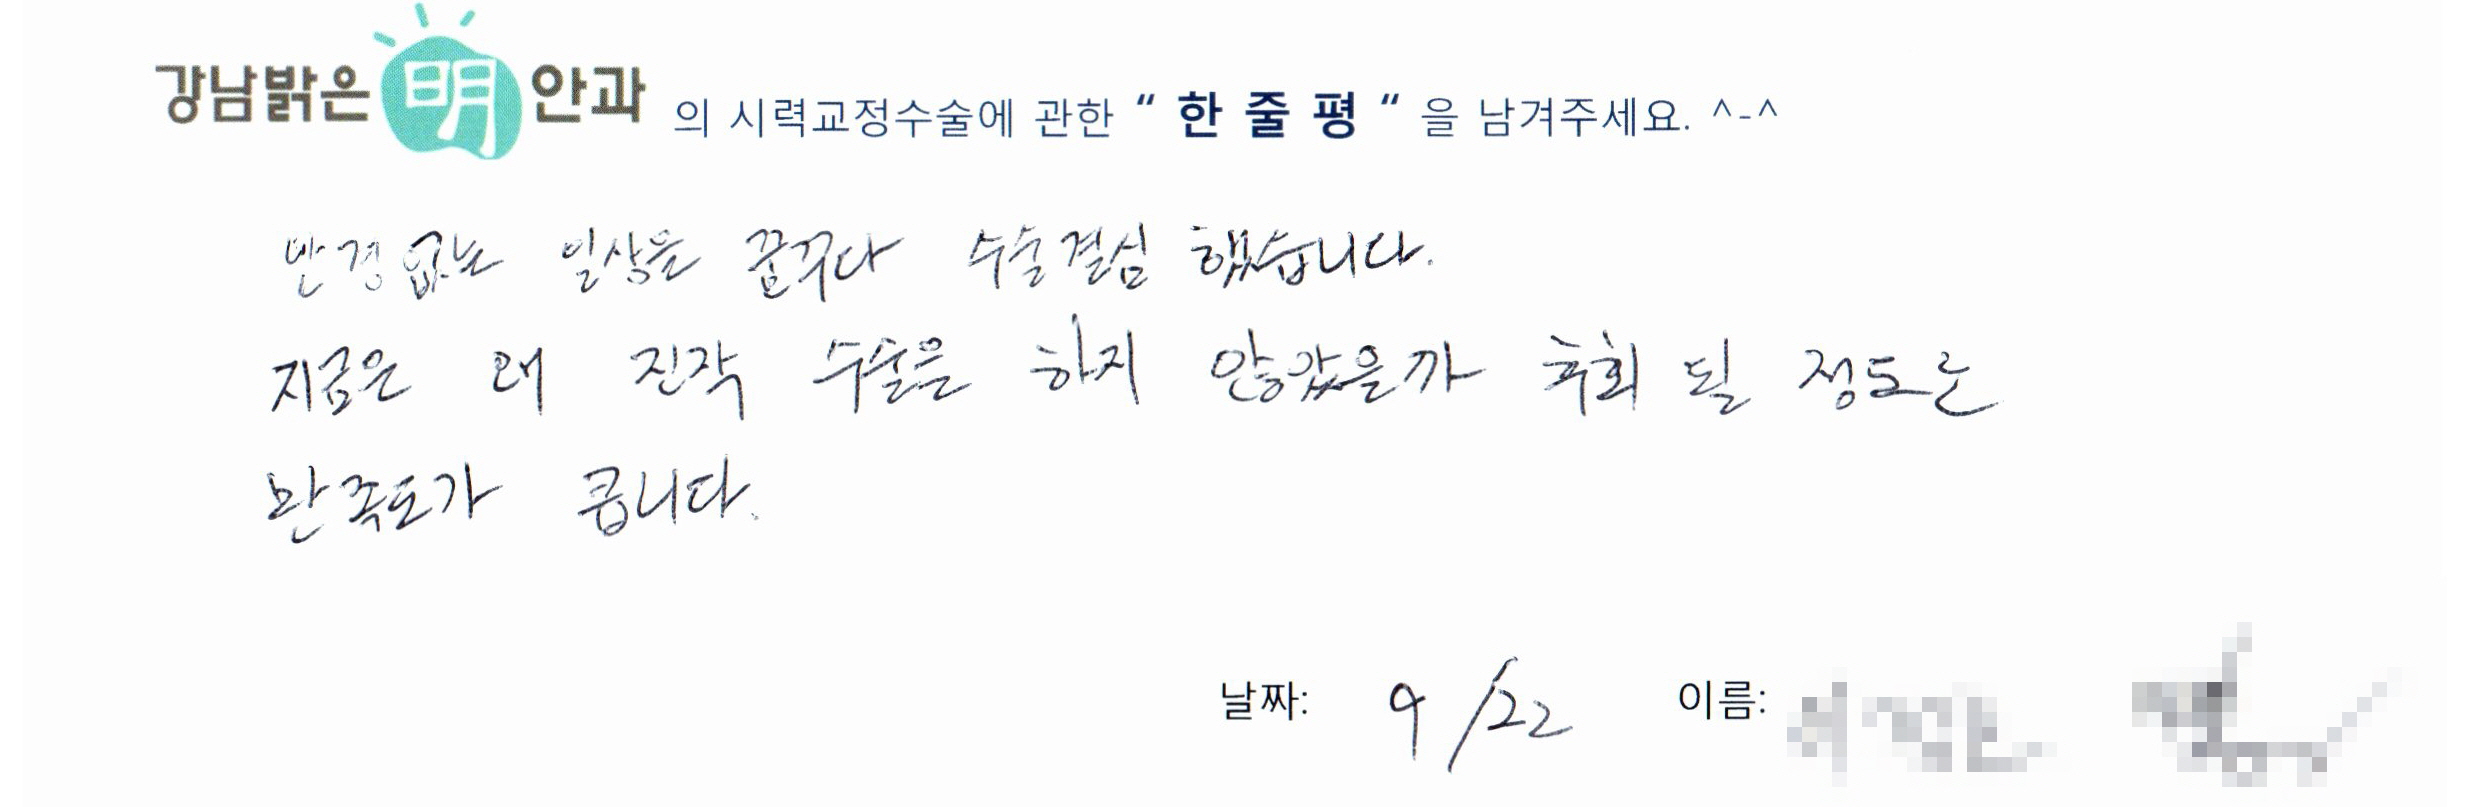 강남밝은明안과 의 시력교정수술에 관한 “ 한 줄 평 “ 을 남겨주세요. ^-^
안경없는 일상을 꿈꾸다 수술결심 했습니다.
지금은 왜 진작 수술을 하지 않았을까 후회 될 정도로
만족도가 큽니다.
날짜: 9/22 이름: